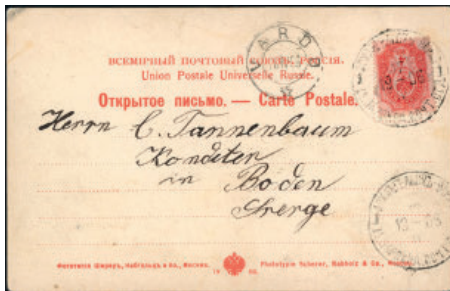 VARDØ
ВСЕМІРНЫЙ ПОЧТОВЫЙ СОЮЗЪ. РОССІЯ.
Union Postale Universelle Russie.
Открытое письмо. — Carte Postale.
Herrn C. Tannenbaum
Konditen
in Boden
Sverge
Фототипія Шереръ, Набгольцъ и Ко., Москва.
Phototypie Scherer, Nabholz & Co.,